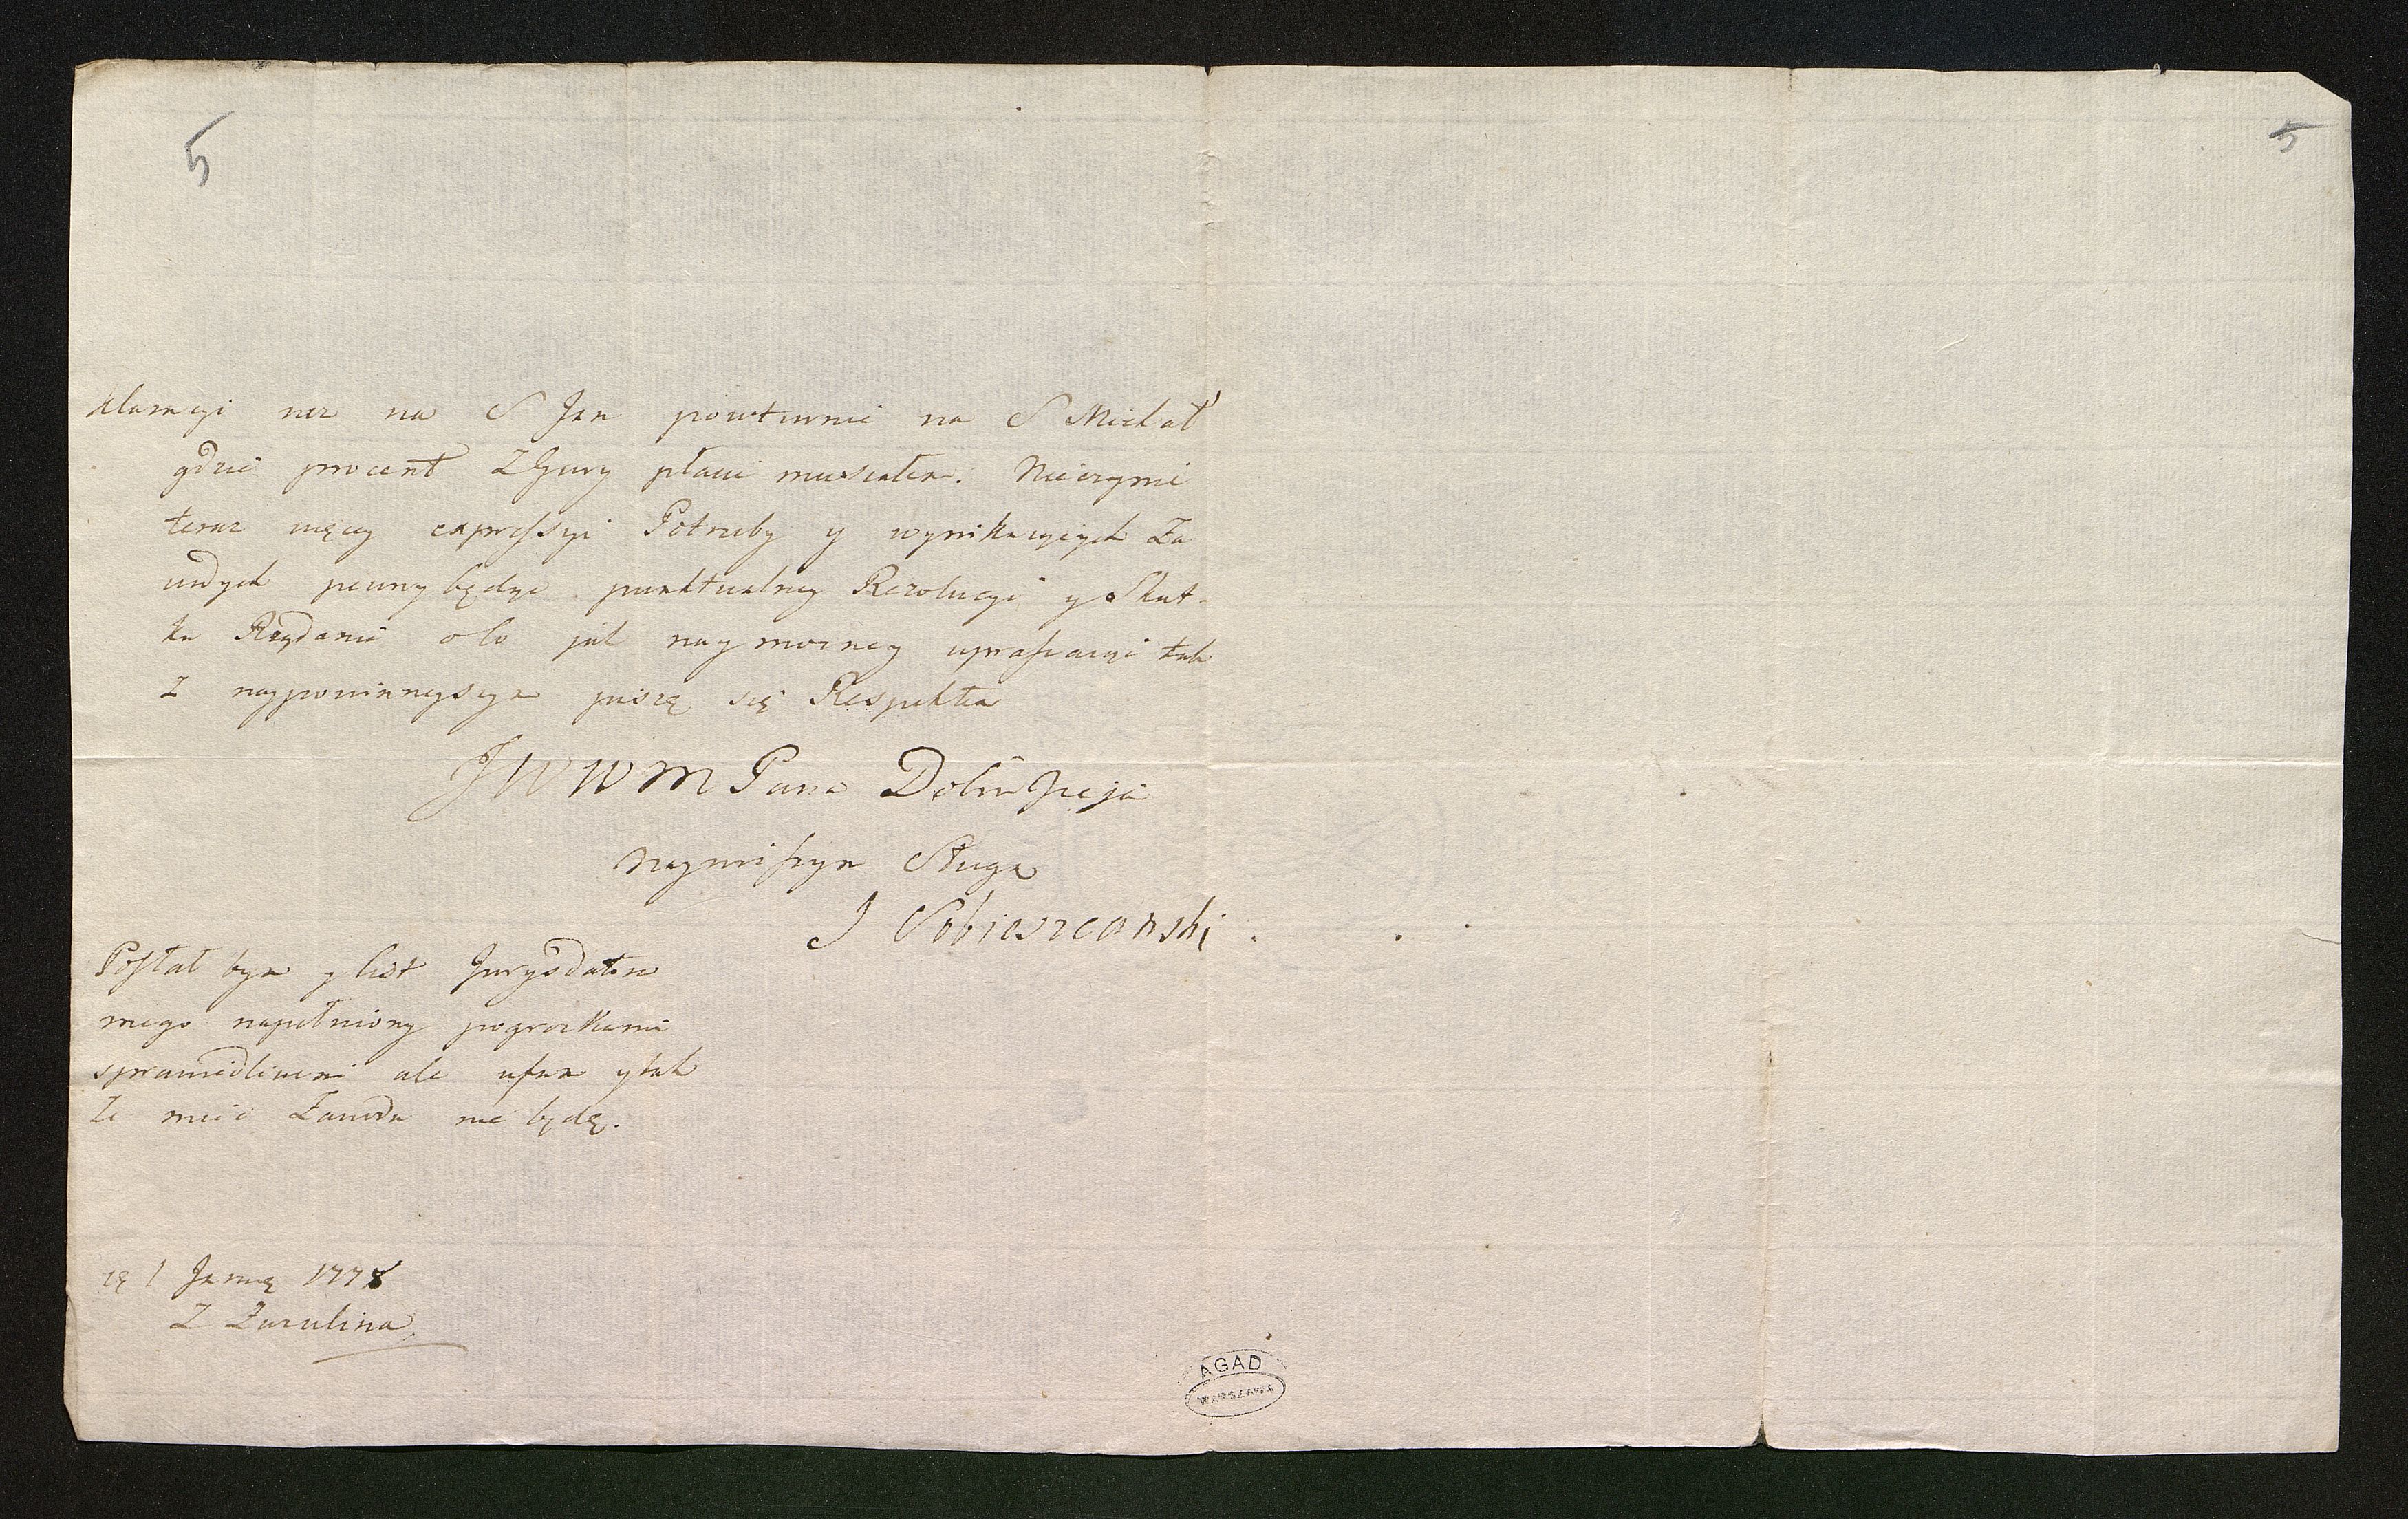 5
5
klaracyi raz na S Jan powturnie na S Michał
gdzie procent z Gury płacić musiałem. Nieczynię
teraz więcy expressyi Potrzeby y wynikaiących Za
wodych pewny będąc punktualney Rezolucyi y Skut-
ku Rządania o to jak naymocney upraszaiąc tak
z naypowinnyszym piszę się Respektem
JWWM Pana Dobrodzieja
Nayniższym Sługą
J Sobieszczanski
Posłał bym y list Jurysdatora
mego napełniony pogrozkami
sprawiedliwemi ale ufam ytak
Ze mieć Zawodu nie będę.
1 Janua 1778
Z Zarulina
AGAD
WARSZAWA